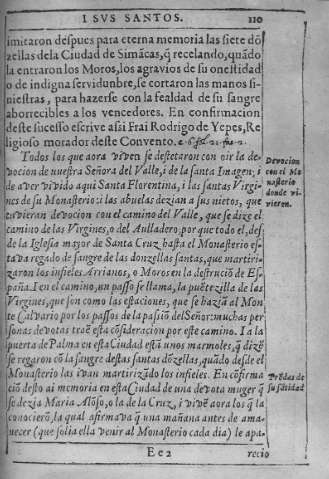 I SVS SANTOS. 220
imitaron despues para eterna memoria las siete dõ
zellas dela Ciudad de Simãcas, q̃ recelando, quãdo
la entraron los Moros, los agravios de su onestidad
o de indigna servidunbre, se cortaron las manos si-
niestras, para hazerse con la fealdad de su sangre
aborrecibles a los vencedores. En confirmacion
deste sucesso escrive assi Frai Rodrigo de Yepes, Re
ligioso morador deste Convento.
Todos los que aora viven se desetaron con oir la de-
vocion de nuestra Señora del Valle, i de la santa Imagen, i
de aver vivido aqui Santa Florentina, i las santas Virgi-
nes de su Monasterio: i las abuelas dezian a sus nietos, que
tuvieran devocion con el camino del Valle, que se dize el
camino de las Virgines, o del Aullador, por que todo el, des-
de la Iglesia mayor de Santa Cruz hasta el Monasterio es-
tava regado de sangre de las donzellas santas, que martiri-
zaron los infieles Arrianos, o Moros en la destruciõ de Es-
paña. I en el camino, un passo se llama, la puẽtezilla de las
Virgines, que son como las estaciones, que se hazia al Mon
te Calvario por los passos de la passiõ del Señor: muchas per
sonas devotas traẽ esta cõsideracion por este camino. I a la
puerta de Palma en esta Ciudad estã unos marmoles, q̃ dizẽ
se regaron cõ la sangre destas santas dõzellas, quãdo desde el
Monasterio las ivan martirizãdo los infieles. En cõfirma
ciõ desto ai memoria en esta Ciudad de una devota muger q̃
se dezia Maria Alõso, o la de la Cruz, i vivẽ aora los q̃ la
conocierõ, la qual afirmava q̃ una mañana antes de ama-
necer (que solia ella venir al Monasterio cada dia) le apa-
Ee2 recio
Devocion
con el Mo
nasterio
donde vi-
vieron.
Pruevas de
su sãtidad